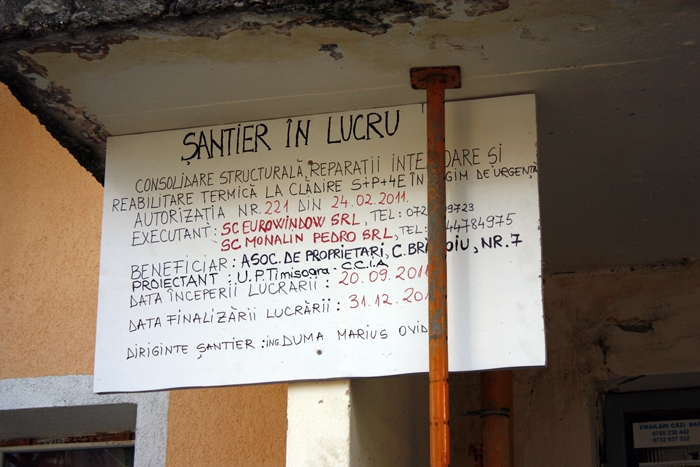 ȘANTIER ÎN LUCRU
CONSOLIDARE STRUCTURALĂ, REPARAȚII ȘI
REABILITARE TERMICĂ LA CLĂDIRE S+P+4E ÎN DE URGENȚĂ
AUTORIZAȚIA NR. 221 DIN 24.02.2011.
EXECUTANT: SC EUROWINDOW SRL, TEL:
SC MONALIN PEDRO SRL, TEL:
BENEFICIAR: ASOC. DE PROPRIETARI, C. NR. 7
PROIECTANT: U.P. Timișoara - C.C.I.A
DATA ÎNCEPERII LUCRĂRII: 20.09.2011
DATA FINALIZĂRII LUCRĂRII: 31.12.
DIRIGINTE ȘANTIER: ING. DUMA MARIUS
0765 235 442
0732 937 532